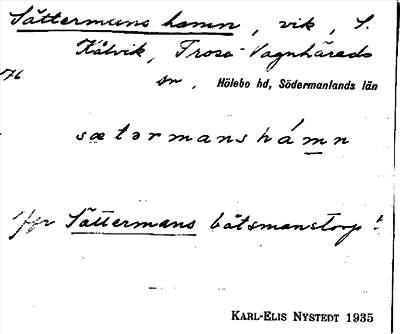 Sättermans hamn, vik, S.
Kålvik, Trosa-Vagnhärads
76 sn, Hölebo hd, Södermanlands län
sætərmanshámn
Jfr Sättermans båtsmanstorp!
KARL-ELIS NYSTEDT 1935